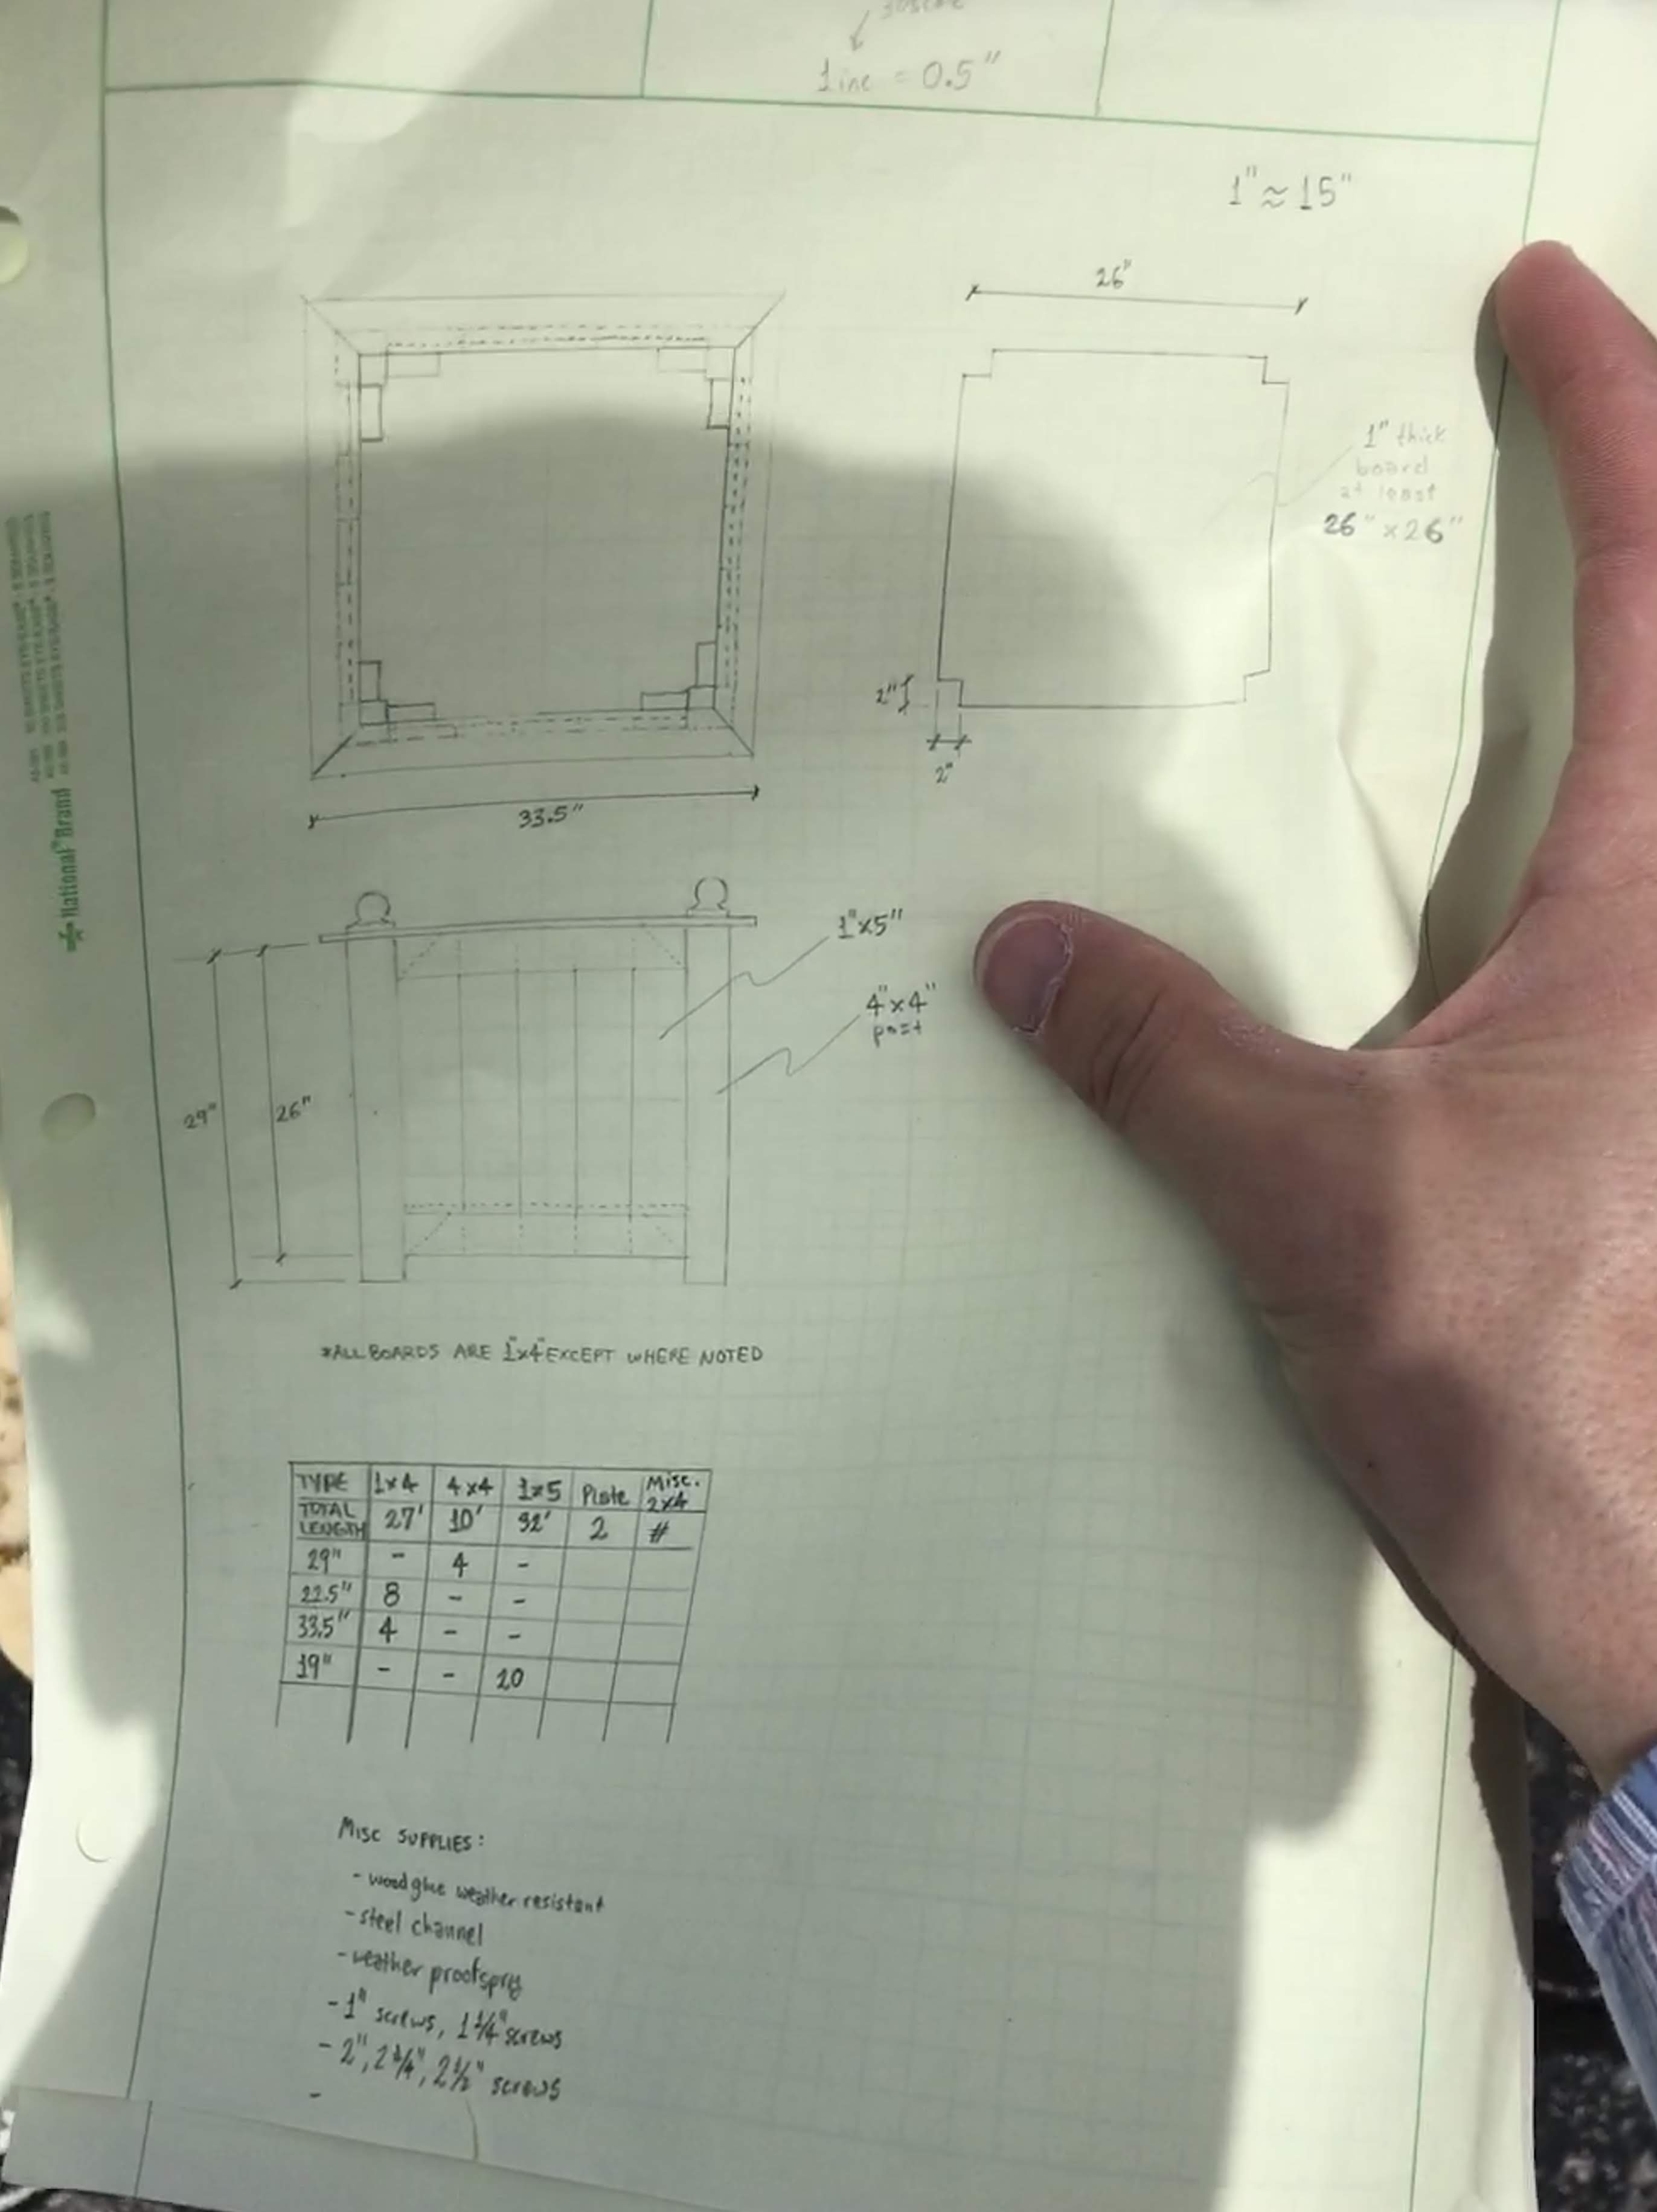 1 in = 0.5"
1" ≈ 15"
26"
1" thick
board
at least
26" x 26"
2"
2"
33.5"
1"x5"
4"x4"
post
29"
26"
*ALL BOARDS ARE 1"x4" EXCEPT WHERE NOTED
TYPE 1x4 4x4 1x5 Plate Misc. 2x4
TOTAL LENGTH 27' 10' 32' 2 #
29" - 4 -
22.5" 8 - -
33.5" 4 - -
19" - - 20
MISC SUPPLIES:
- wood glue weather resistant
- steel channel
- weather proof spray
- 1" screws, 1 1/4" screws
- 2", 2 1/4", 2 1/2" screws
-
National Brand